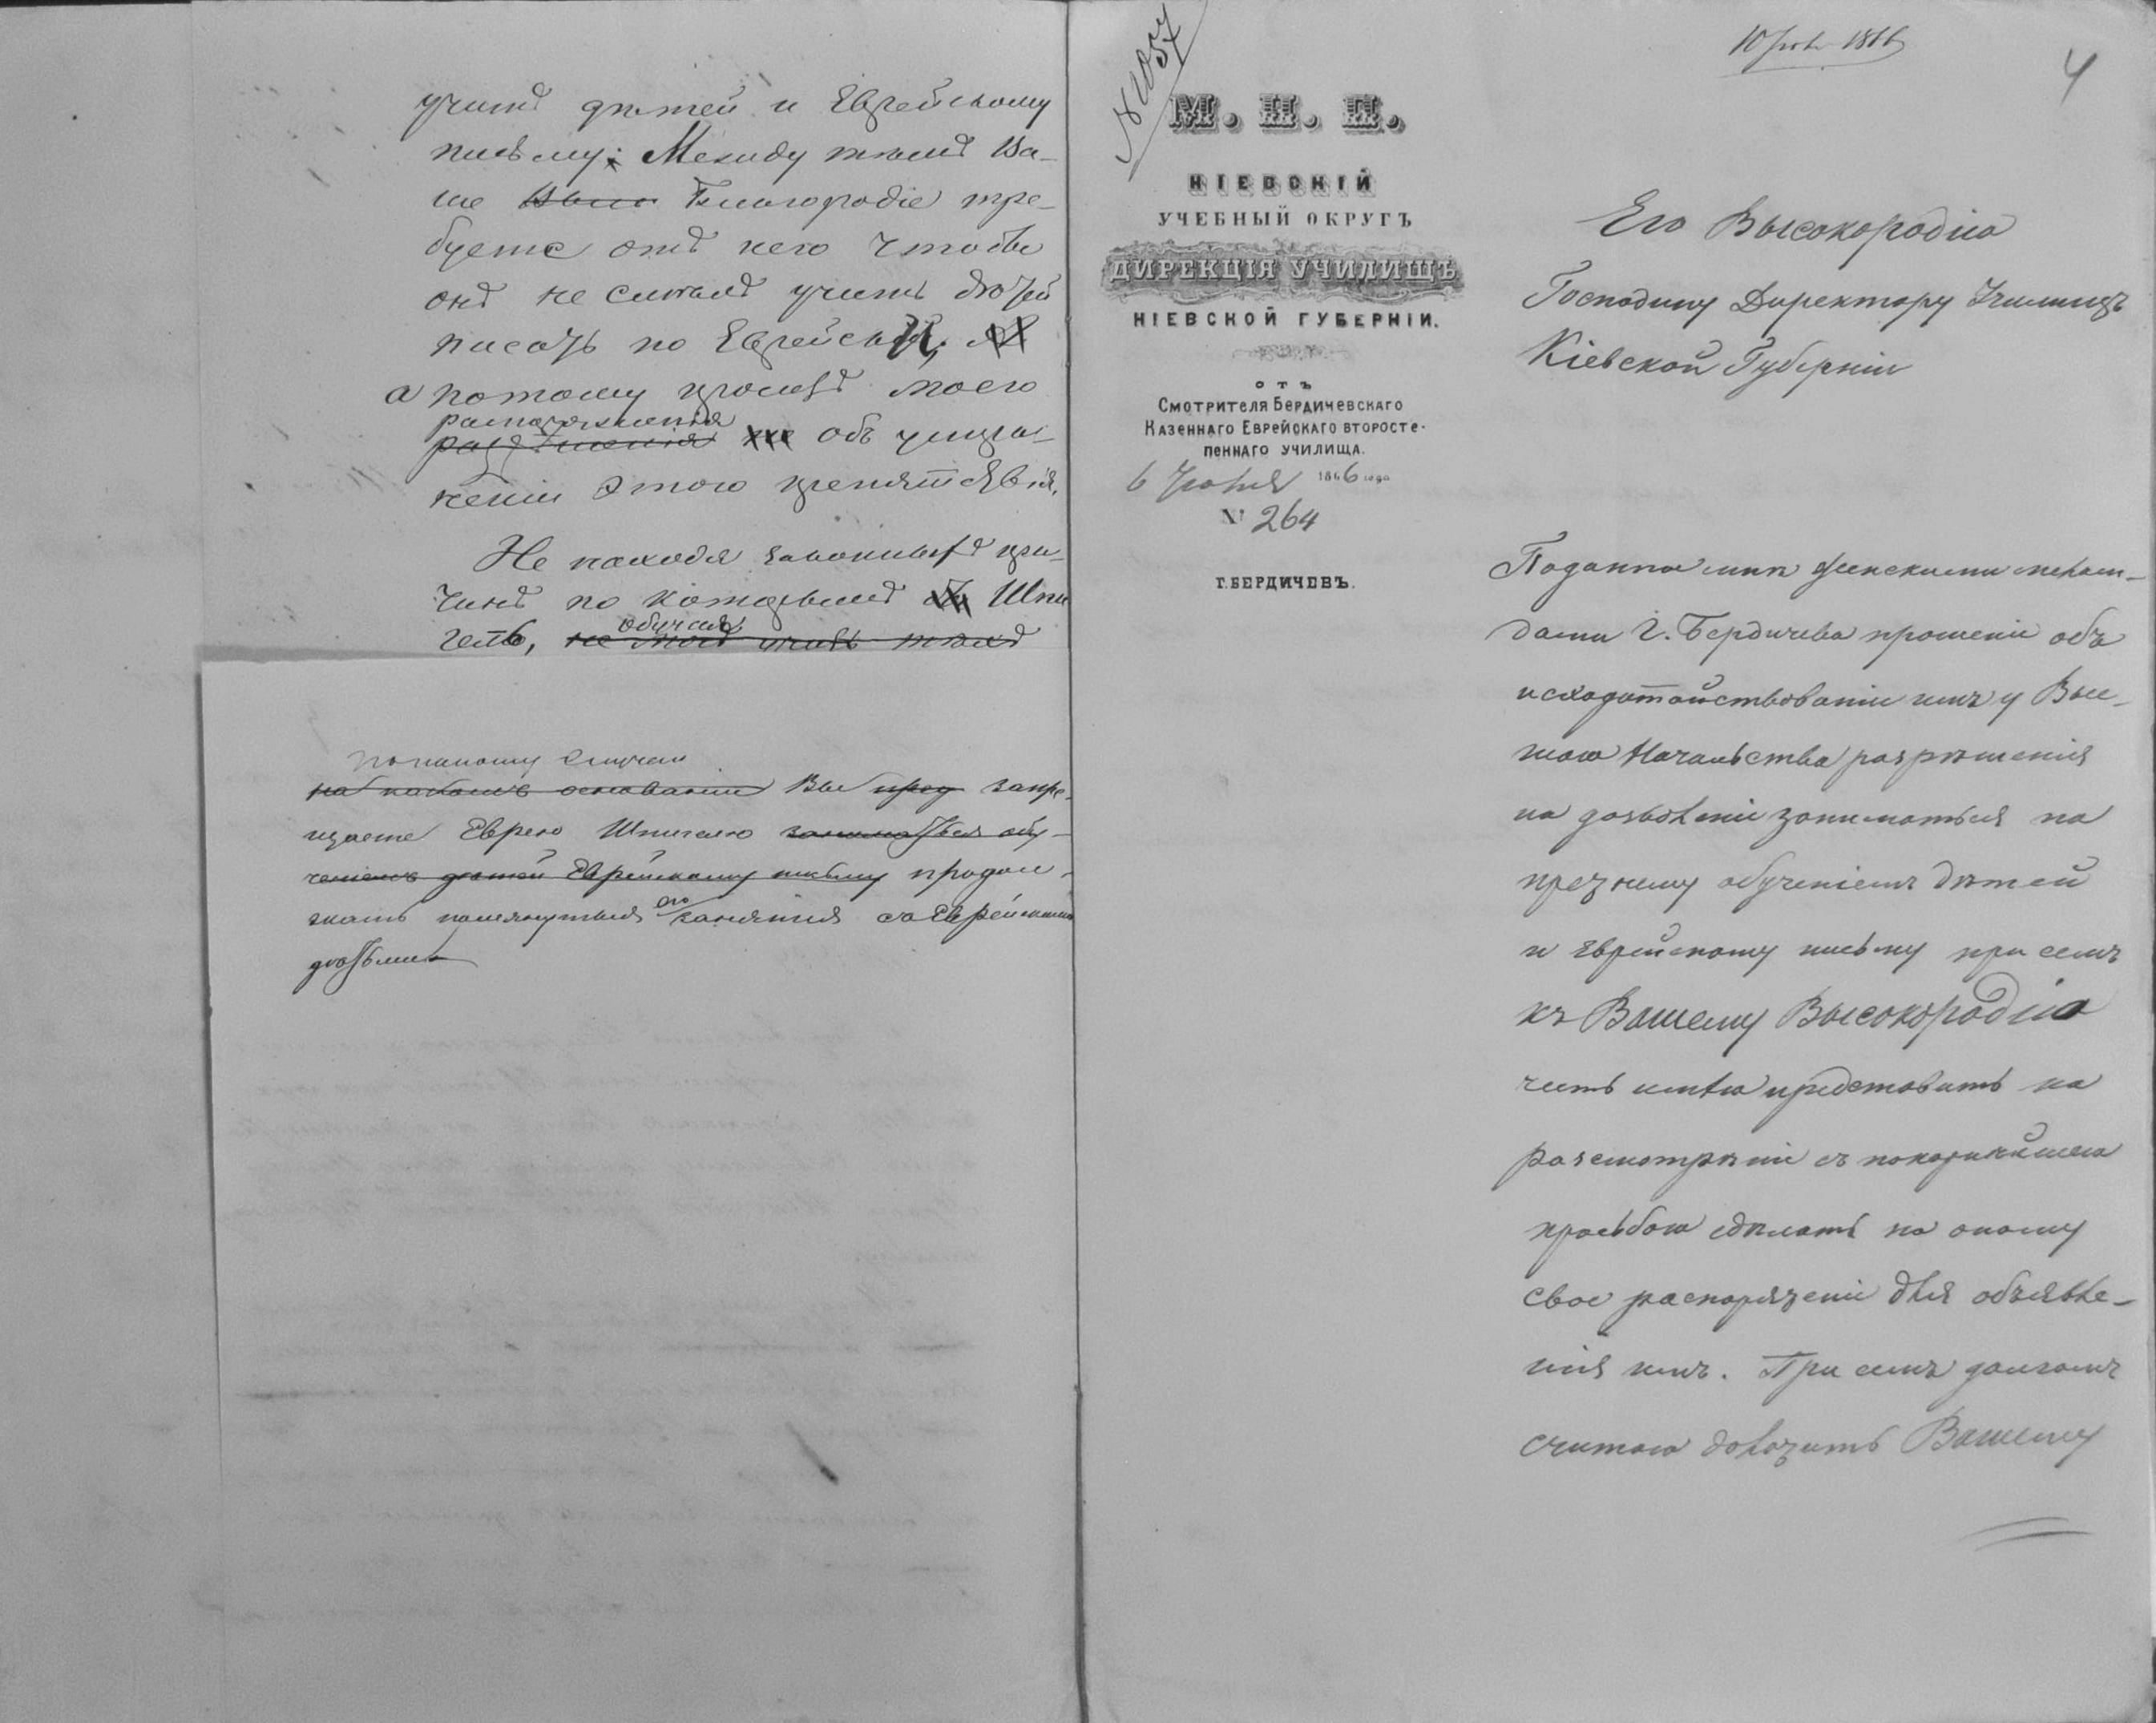 учитъ дѣтей и Еврейскому
письму. Между тѣмъ Ва-
ше Благородіе тре-
буете отъ него чтобы
онъ не смѣлъ учить дѣтей
писать по Еврейски,
а потому просятъ моего
распоряженія
объ устра-
неніи этого препятствія.
Не находя законныхъ при-
чинъ по которымъ Шпи
гель, не могъ учить
обучая
по какому случаю
на какомъ основаніи Вы запре-
щаете Еврею Шпигелю заниматься обу-
ченіемъ дѣтей Еврейскому письму продол-
жать помянутыя его занятія съ Еврейскими
дѣтьми
№ 1057
М. Н. П.
КІЕВСКІЙ
УЧЕБНЫЙ ОКРУГЪ
ДИРЕКЦІЯ УЧИЛИЩЪ
КІЕВСКОЙ ГУБЕРНІИ.
ОТЪ
Смотрителя Бердичевскаго
Казеннаго Еврейскаго второсте-
пеннаго училища.
6 Іюня 1866 года
№ 264
Г. БЕРДИЧЕВЪ.
10 1866
4
Его Высокородію
Господину Директору Училищъ
Кіевской Губерніи
Поданное мнѣ меламе-
дами г. Бердичева прошеніе объ
исходатайствованіи имъ у Выс-
шаго Начальства разрѣшенія
на дозволеніе заниматься по
прежнему обученіемъ дѣтей
и еврейскому письму при семъ
къ Вашему Высокородію
честь имѣю представить на
разсмотрѣніе съ покорнѣйшею
просьбою сдѣлать по оному
свое распоряженіе для объявле-
нія имъ. При семъ долгомъ
считаю доложить Вашему